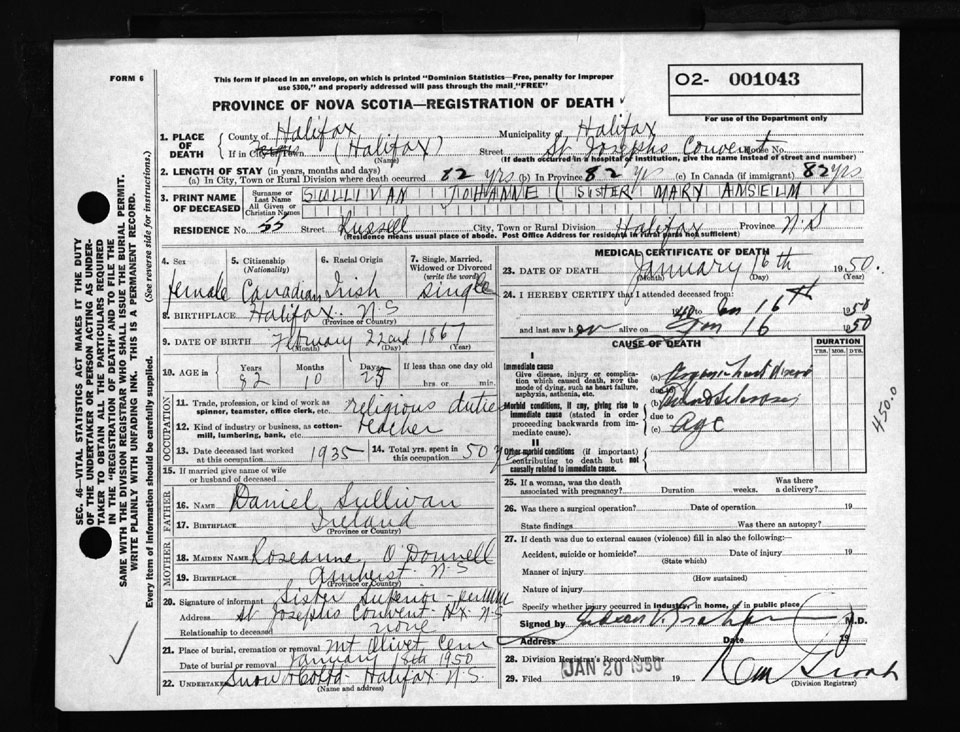 FORM 6
This form if placed in an envelope, on which is printed "Dominion Statistics—Free, penalty for improper
use $300," and properly addressed will pass through the mail "FREE"
O2- 001043
For use of the Department only
PROVINCE OF NOVA SCOTIA—REGISTRATION OF DEATH
1. PLACE OF DEATH
County of Halifax Municipality of Halifax
If in City or Town (Halifax) (Name) Street St Josephs Convent House No.
(If death occurred in a hospital or institution, give the name instead of street and number)
2. LENGTH OF STAY (in years, months and days)
(a) In City, Town or Rural Division where death occurred 82 yrs (b) In Province 82 yrs (c) In Canada (if immigrant) 82 yrs
3. PRINT NAME OF DECEASED
Surname or Last Name
All Given or Christian Names
SULLIVAN JOHANNE (SISTER MARY ANSELM
RESIDENCE No. 55 Street Russell City, Town or Rural Division Halifax Province N.S
(Residence means usual place of abode. Post Office Address for residents in rural parts not sufficient)
4. Sex
female
5. Citizenship
(Nationality)
Canadian
6. Racial Origin
Irish
7. Single, Married,
Widowed or Divorced
(write the word)
single
8. BIRTHPLACE Halifax N.S
(Province or Country)
9. DATE OF BIRTH February 22nd 1867
(Month) (Day) (Year)
10. AGE in
Years Months Days If less than one day old
82 10 25 hrs. or min.
OCCUPATION
11. Trade, profession, or kind of work as
spinner, teamster, office clerk, etc. religious duties
12. Kind of industry or business, as cotton-
mill, lumbering, bank, etc. teacher
13. Date deceased last worked
at this occupation 1935
14. Total yrs. spent in
this occupation 50 yrs
15. If married give name of wife
or husband of deceased
FATHER
16. NAME Daniel Sullivan
17. BIRTHPLACE Ireland
(Province or Country)
MOTHER
18. MAIDEN NAME Roseanne O'Donnell
19. BIRTHPLACE Amherst N.S
(Province or Country)
20. Signature of informant Sister Superior
Address St Josephs Convent Hx N.S
Relationship to deceased none
21. Place of burial, cremation or removal Mt Olivet Cem
Date of burial or removal January 18th 1950
22. Undertaker Snow & Co Ltd Halifax N.S.
(Name and address)
MEDICAL CERTIFICATE OF DEATH
23. DATE OF DEATH January 16th 1950.
(Month) (Day) (Year)
24. I HEREBY CERTIFY that I attended deceased from:
to Jan 16th 1950
and last saw her alive on Jan 16 1950
CAUSE OF DEATH
DURATION
YRS. MOS. DYS.
I
Immediate cause
Give disease, injury or complica-
tion which caused death, NOT the
mode of dying, such as heart failure,
asphyxia, asthenia, etc.
(a) heart disease
due to
Morbid conditions, if any, giving rise to
immediate cause (stated in order
proceeding backwards from im-
mediate cause).
(b)
due to
(c) Age
II
Other morbid conditions (if important)
contributing to death but not
causally related to immediate cause.
450.0
25. If a woman, was the death
associated with pregnancy? Duration weeks. Was there
a delivery?
26. Was there a surgical operation? Date of operation 19
State findings Was there an autopsy?
27. If death was due to external causes (violence) fill in also the following:
Accident, suicide or homicide? Date of injury 19
(State which)
Manner of injury
(How sustained)
Nature of injury
Specify whether injury occurred in industry, in home, or in public place
Signed by M.D.
Address Date 19
28. Division Registrar's Record Number
29. Filed JAN 20 1950 19
(Division Registrar)
SEC. 46—VITAL STATISTICS ACT MAKES IT THE DUTY
OF THE UNDERTAKER OR PERSON ACTING AS UNDER-
TAKER TO OBTAIN ALL THE PARTICULARS REQUIRED
IN THE "REGISTRATION OF DEATH" AND TO FILE THE
SAME WITH THE DIVISION REGISTRAR WHO SHALL ISSUE THE BURIAL PERMIT.
WRITE PLAINLY WITH UNFADING INK. THIS IS A PERMANENT RECORD.
Every item of information should be carefully supplied. (See reverse side for instructions.)